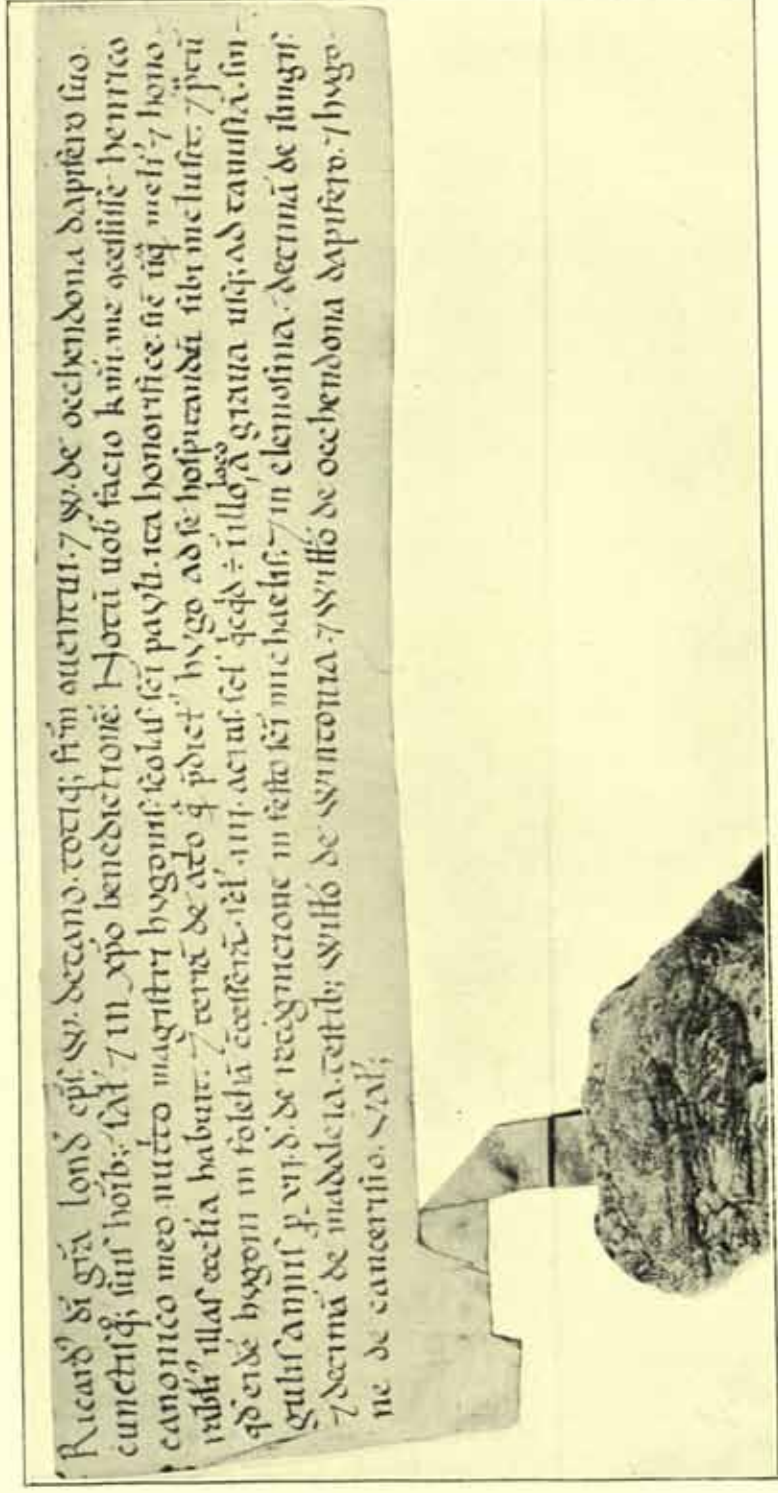 Ricard᾽ di gr̄a lond᾽ ep̄s W. decano. totiq; fr̄m quentui. ⁊ W. de occhendona dapifero suo.
cunctisq; suis hōib; sal᾽ ⁊ in xp̄o benedictionē. Notū uob᾽ facio kmi. me ɔcessisse henrico
canonico meo nutito magistri hugonis scolas sc̄i pauli. ita honorifice sic̄ uq̄ meli᾽ ⁊ hono-
rabili᾽ illas eccl̄ia habuit. ⁊ terrā de at̄o q̄ p̄dict᾽ hugo ad se hospitandū sibi inclusit. ⁊ p̄tū
qd̄ eidē hugoni in foleh̄ā ɔcesserā. scl᾽ .iiii. acras. scl᾽ qcqd ÷ ī illo loco a graua usq; ad tamisiā. sin-
gulis annis p. vii. d. de recognicione in festo sc̄i michaelis. ⁊ in elemosina. decimā de ilingis
⁊ decimā de madaleia. testib; Willo de Wintonia. ⁊ Willo de occhendona dapifero. ⁊ hugo-
ne de cancerisio. Val᾽;